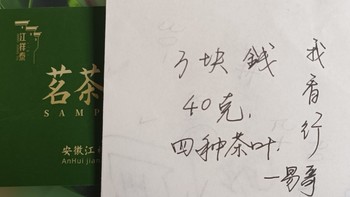 江祥泰
茗茶
SAMP
安徽江
AnHui jian
3块錢
40克,
四种茶叶.
我看行
一易哥